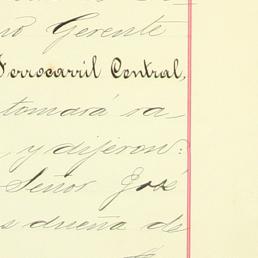 no Gerente
Ferrocarril Central,
tomará ra-
, y dijeron:
Señor José
s dueña de